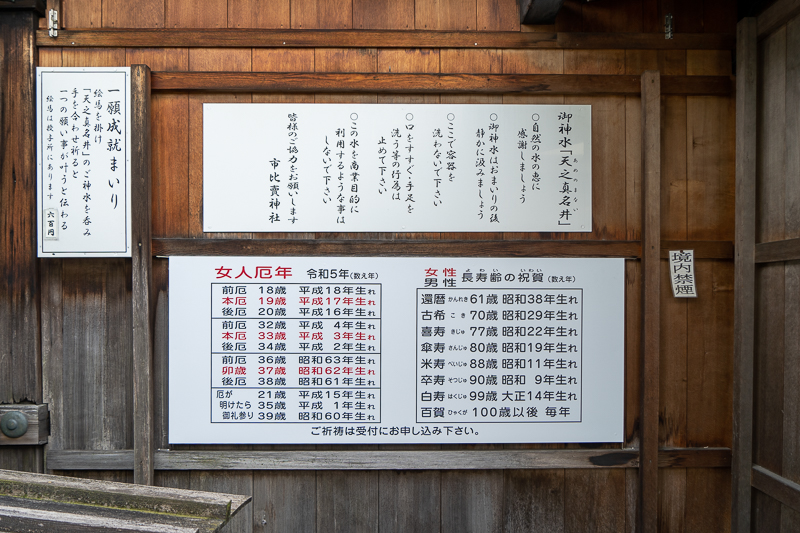 一願成就まいり
絵馬を掛け
「天之真名井」のご神水を呑み
手を合わせ祈ると
一つの願い事が叶うと伝わる
絵馬は授与所にあります
六百円
御神水「天之真名井」
あめのまない
○自然の水の恵に
感謝しましょう
○御神水はおまいりの後
静かに汲みましょう
○ここで容器を
洗わないで下さい
○口をすすぐ・手足を
洗う等の行為は
止めて下さい
○この水を商業目的に
利用するような事は
しないで下さい
皆様のご協力をお願いします
市比賣神社
女人厄年 令和5年(数え年)
前厄 18歳 平成18年生れ
本厄 19歳 平成17年生れ
後厄 20歳 平成16年生れ
前厄 32歳 平成 4年生れ
本厄 33歳 平成 3年生れ
後厄 34歳 平成 2年生れ
前厄 36歳 昭和63年生れ
卯歳 37歳 昭和62年生れ
後厄 38歳 昭和61年生れ
厄が 21歳 平成15年生れ
明けたら 35歳 平成 1年生れ
御礼参り 39歳 昭和60年生れ
女性
男性
長寿齢の祝賀(数え年)
よわい いわい
還暦 かんれき 61歳 昭和38年生れ
古希 こき 70歳 昭和29年生れ
喜寿 きじゅ 77歳 昭和22年生れ
傘寿 さんじゅ 80歳 昭和19年生れ
米寿 べいじゅ 88歳 昭和11年生れ
卒寿 そつじゅ 90歳 昭和 9年生れ
白寿 はくじゅ 99歳 大正14年生れ
百賀 ひゃくが 100歳以後 毎年
ご祈祷は受付にお申し込み下さい。
境内禁煙